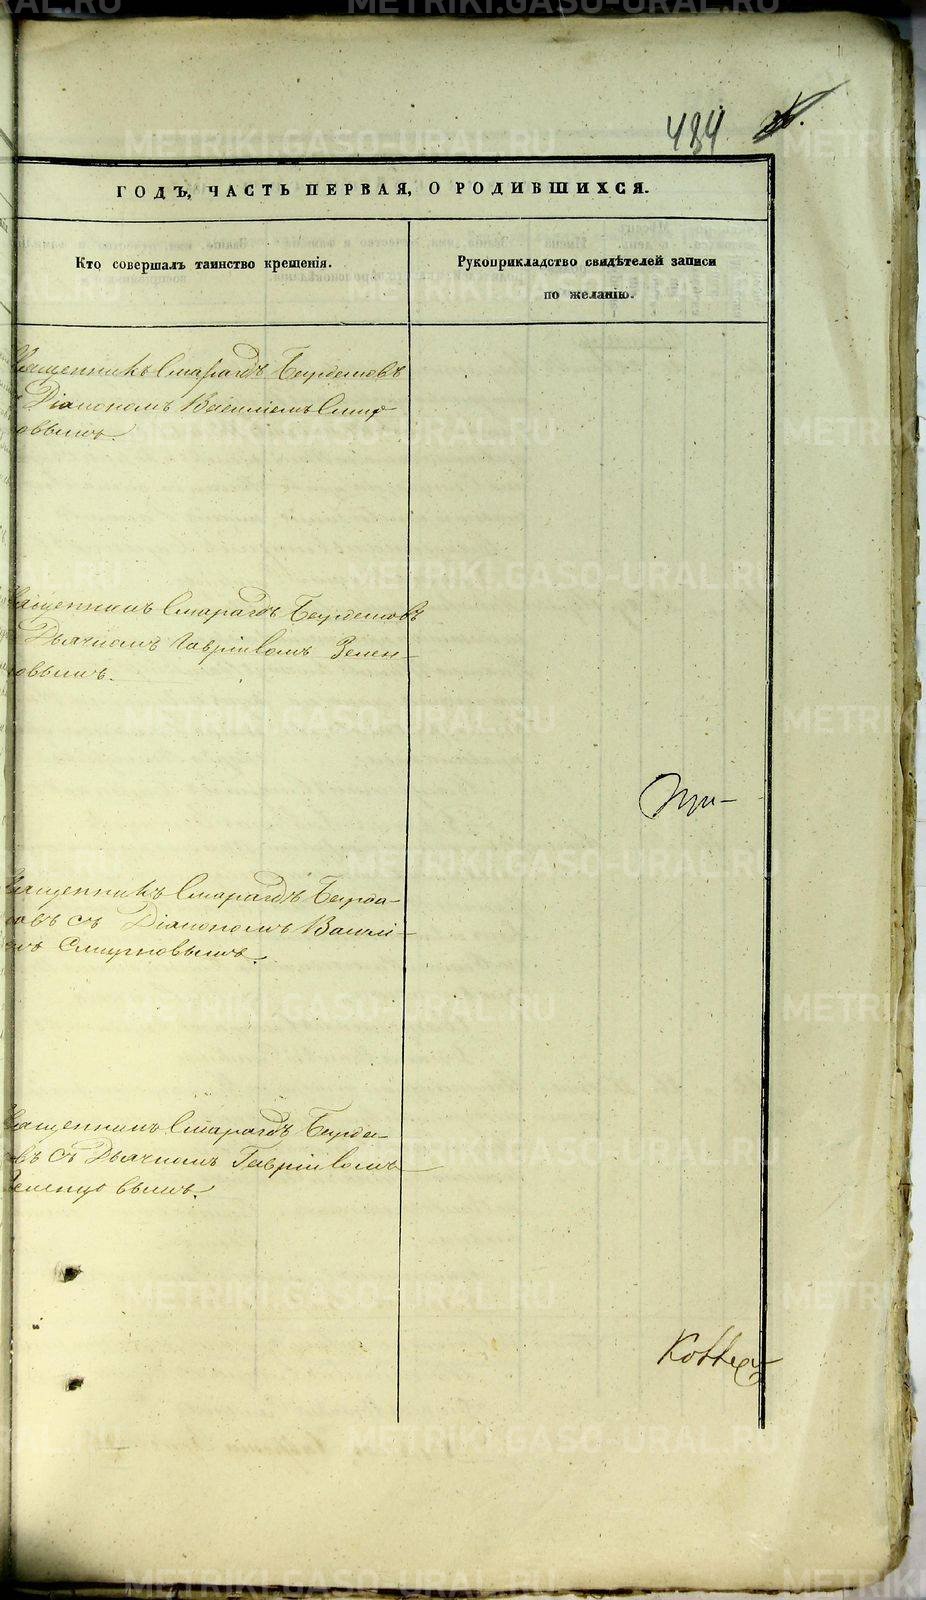 484
ГОДЪ, ЧАСТЬ ПЕРВАЯ, О РОДИВШИХСЯ.
Кто совершалъ таинство крещенія.
Рукоприкладство свидѣтелей записи
по желанію.
Священникъ Смарагдъ
Діакономъ Василіемъ Смир
новымъ.
Священникъ Смарагдъ
Дьячкомъ Гавріиломъ Зелен-
цовымъ.
При-
Священникъ Смарагдъ
съ Діакономъ Василі-
емъ Смирновымъ.
Священникъ Смарагдъ
съ Дьячкомъ Гавріиломъ
Зеленцовымъ.
METRIKI.GASO-URAL.RU